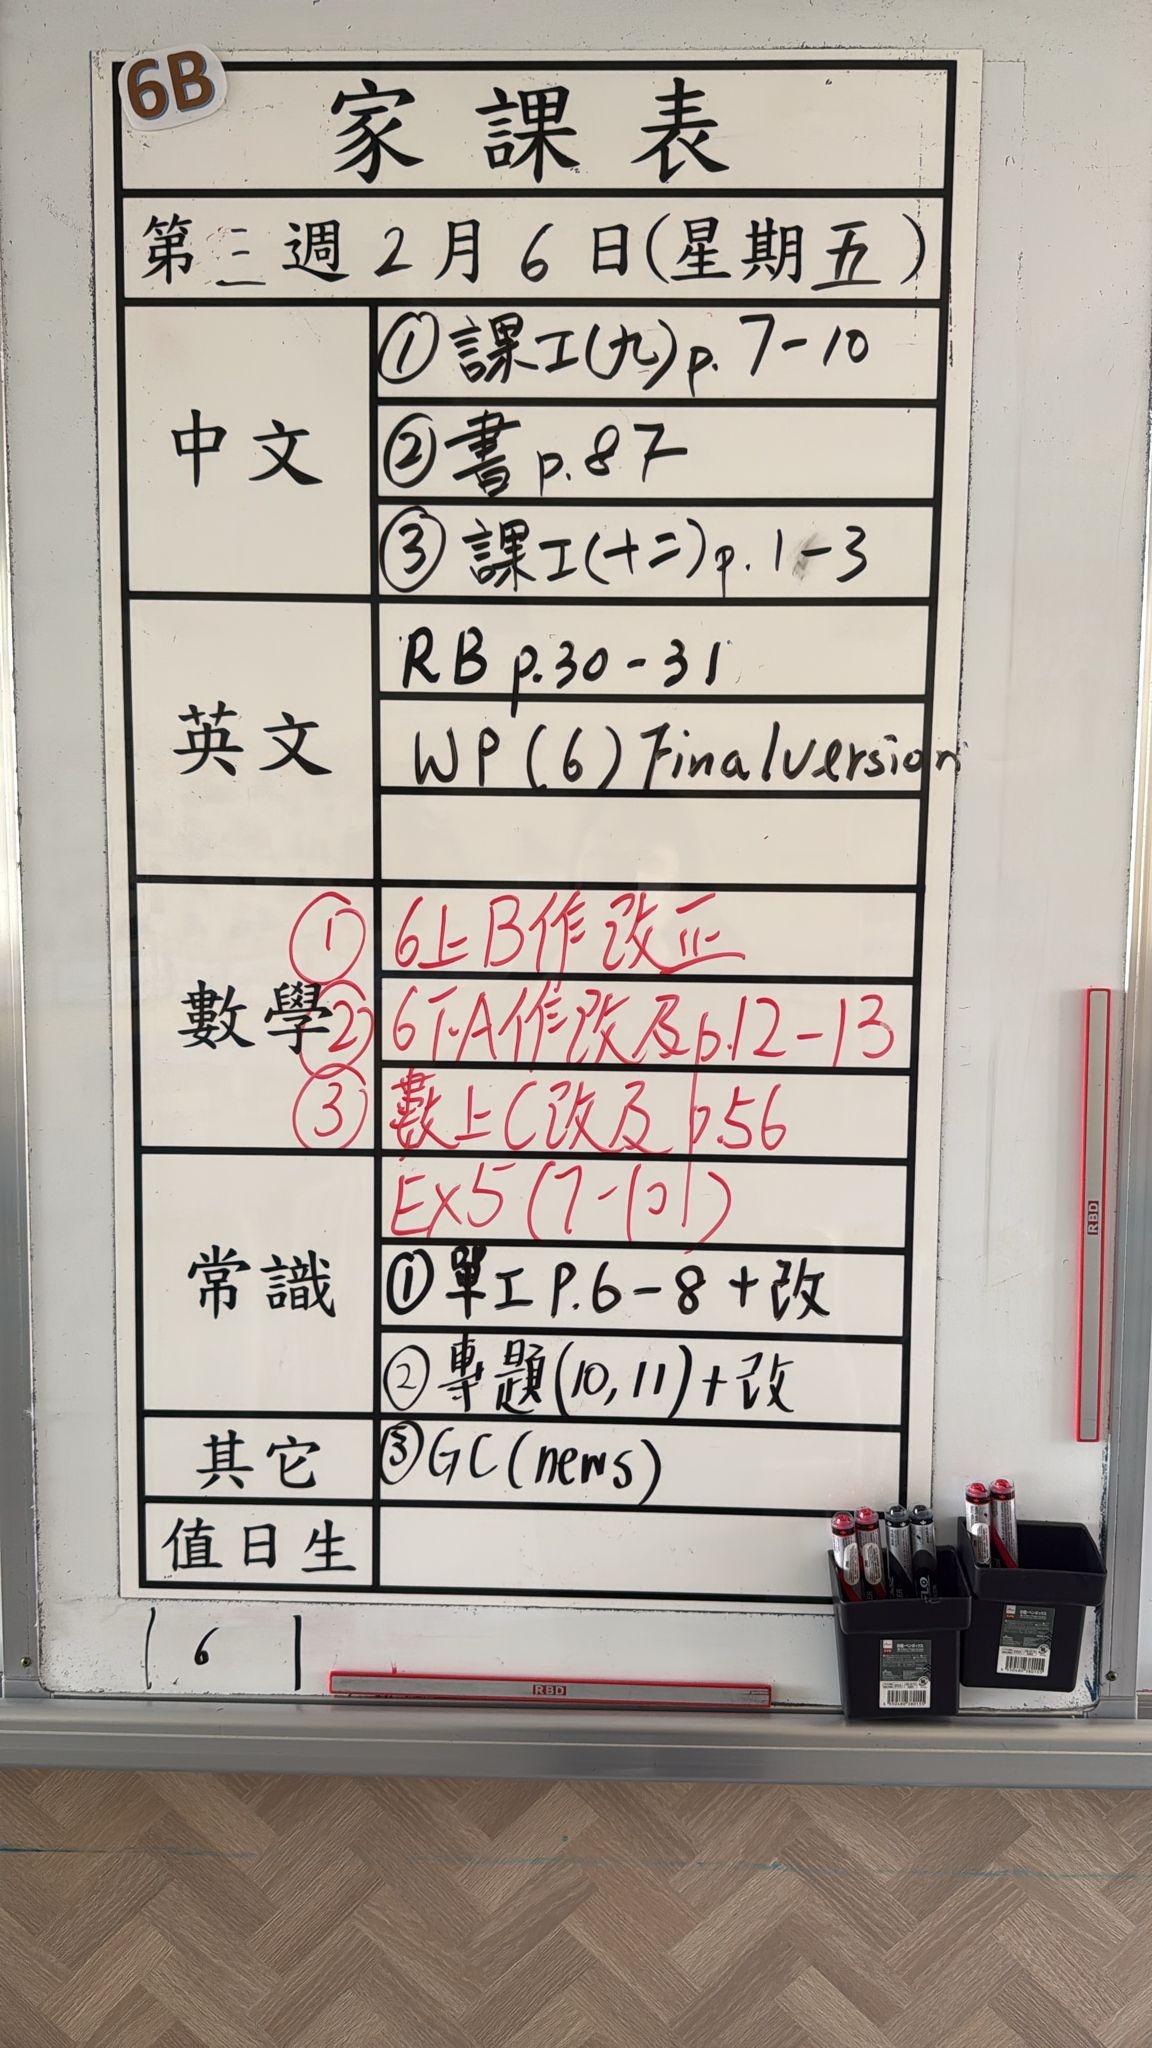 6B
家課表
第三週2月6日(星期五)
中文
①課工(九)p.7-10
②書p.87
③課工(十二)p.1-3
英文
RB p.30-31
WP(6)Final version
數學
①6上B作改正
②6下A作改及p.12-13
③數上C改及p.56
Ex5(7-10)
常識
①單工P.6-8+改
②專題(10,11)+改
其它
③GC(news)
值日生
6
RBD
RBD